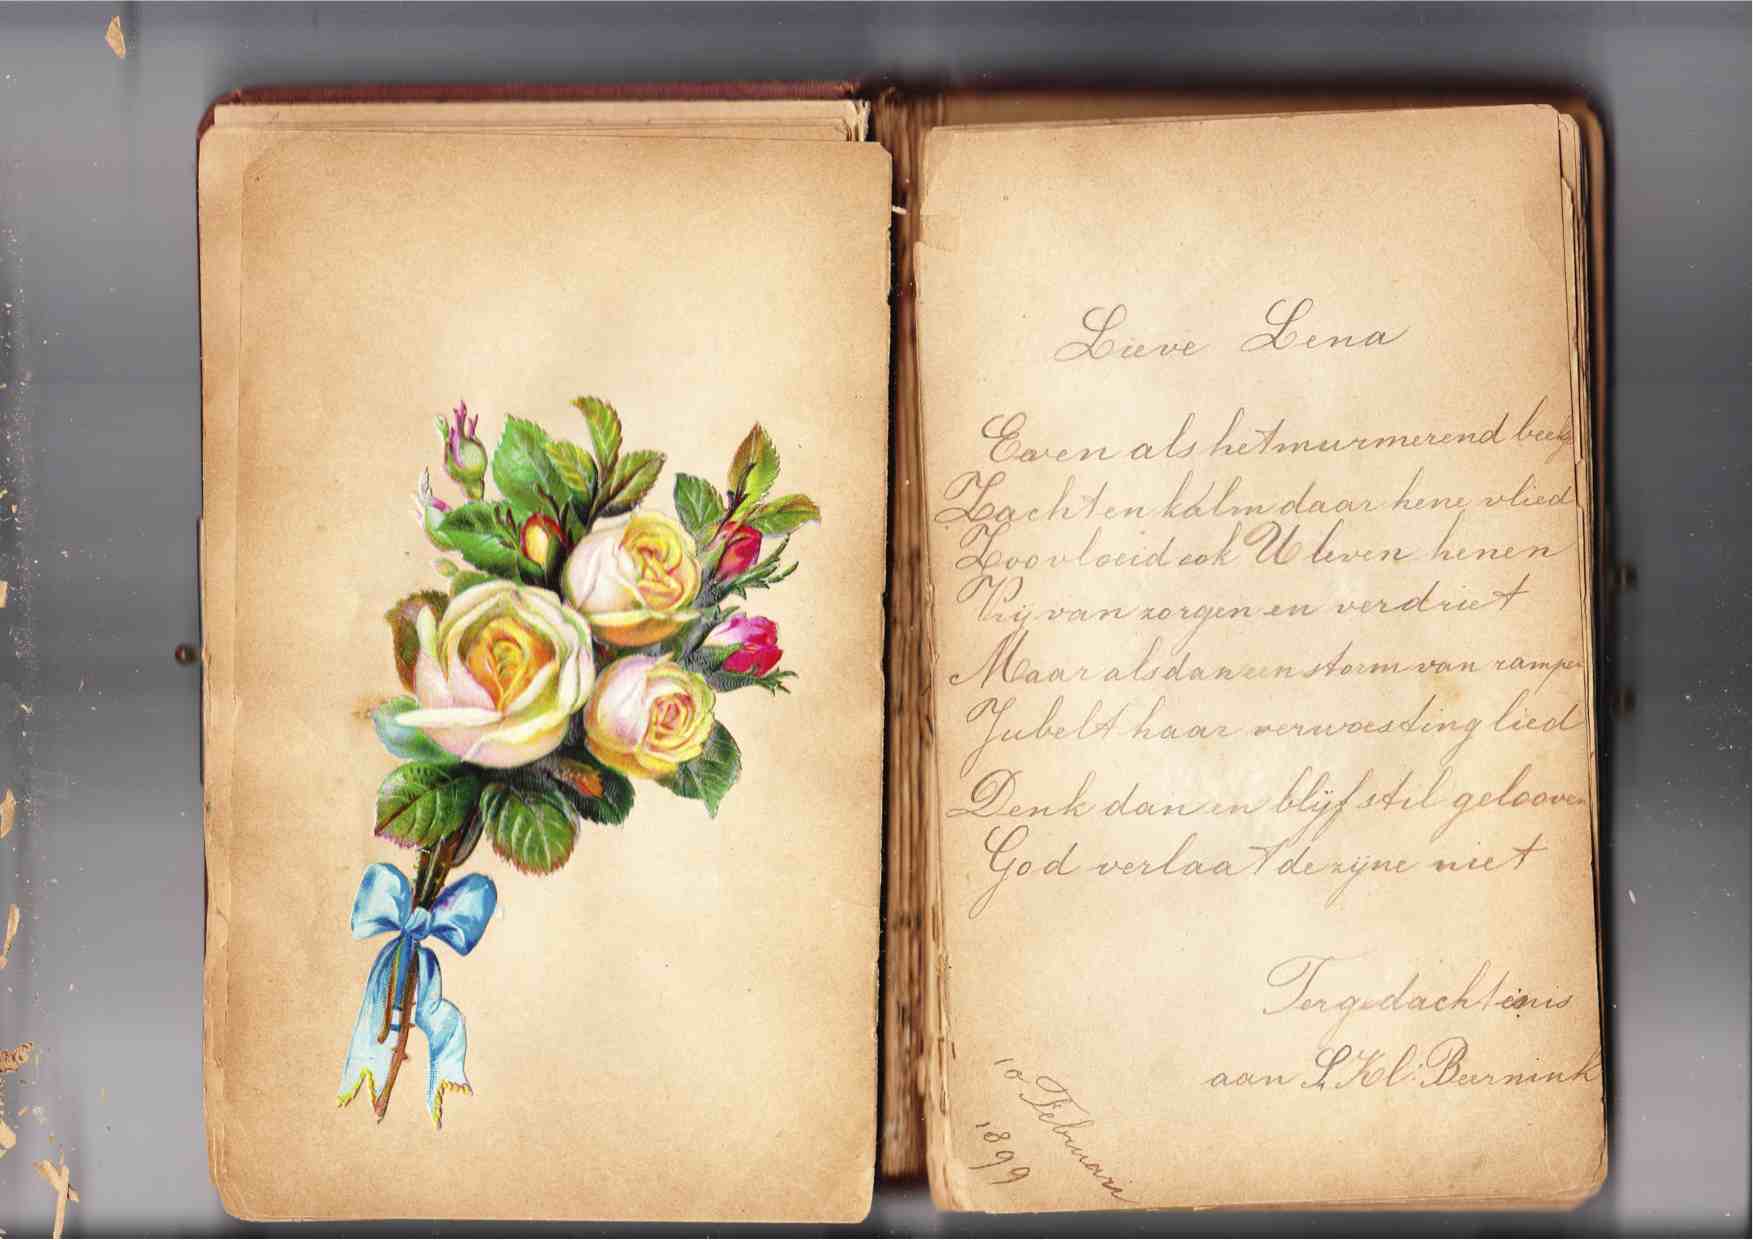 Lieve Lena
Even als het murmerend beekje
Zacht en kalm daar hene vlied
Zoo vloeid ook U leven henen
Vrij van zorgen en verdriet
Maar als dan een storm van rampen
Jubelt haar verwoesting lied
Denk dan en blijf stil gelooven
God verlaat de zijne niet
Ter gedachtenis
aan S. Kl: Beernink
10 Februari
1899